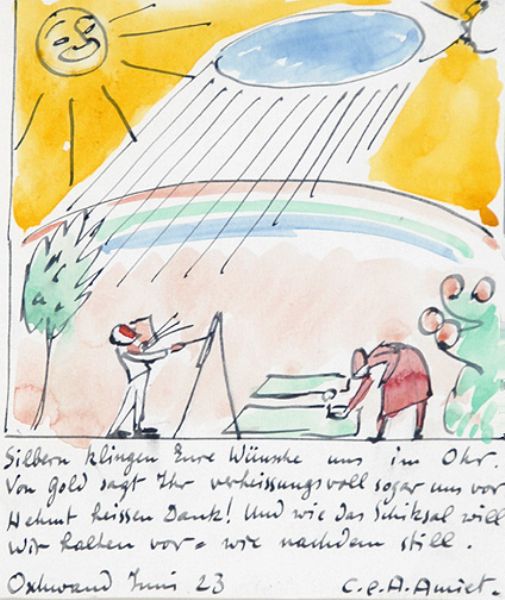 Silbern klingen Eure Wünsche uns im Ohr.
Von Gold sagt Ihr verheissungsvoll sogar uns vor
Nehmt heissen Dank! Und wie das Schiksal will
Wir halten vor = wie nachdem still.
Oschwand Juni 23 C.&A. Amiet.